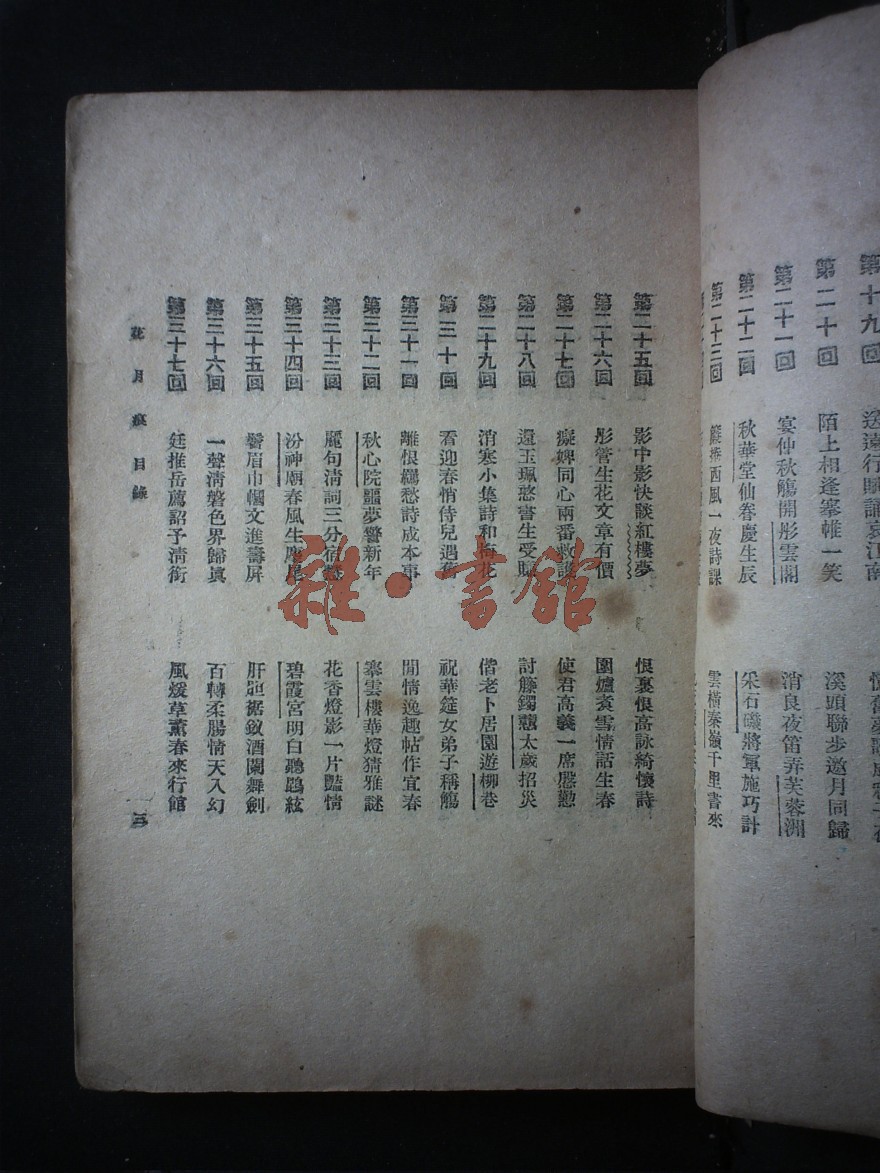 第十九回 送遠行賦誦哀江南
第二十回 陌上相逢搴帷一笑 溪頭聯步邀月同歸
第二十一回 宴仲秋觴開彤雲閣 消良夜笛弄芙蓉洲
第二十二回 秋華堂仙眷慶生辰 采石磯將軍施巧計
第二十三回 簾捲西風一夜詩課 雲橫秦嶺千里書來
第二十五回 影中影快談紅樓夢 恨裏恨高詠綺懷詩
第二十六回 彤管生花文章有價 圍爐煑雪情話生春
第二十七回 癡婢同心兩番救護 使君高義一席慇懃
第二十八回 還玉珮憨書生受賺 討藤鐲戇太歲招災
第二十九回 消寒小集詩和梅花 偕老卜居園遊柳巷
第三十回 看迎春悄侍兒遇舊 祝華筵女弟子稱觴
第三十一回 離恨羈愁詩成本事 閒情逸趣帖作宜春
第三十二回 秋心院噩夢警新年 搴雲樓華燈猜雅謎
第三十三回 麗句清詞三分宿 花香燈影一片豔情
第三十四回 汾神廟春風生麈尾 碧霞宮明白聽鵾絃
第三十五回 鬚眉巾幗文進壽屏 肝膽裙釵酒闌舞劍
第三十六回 一聲清磬色界歸眞 百轉柔腸情天入幻
第三十七回 廷推岳薦詔予清銜 風煖草薰春來行館
花月痕 目錄 三
雜·書館